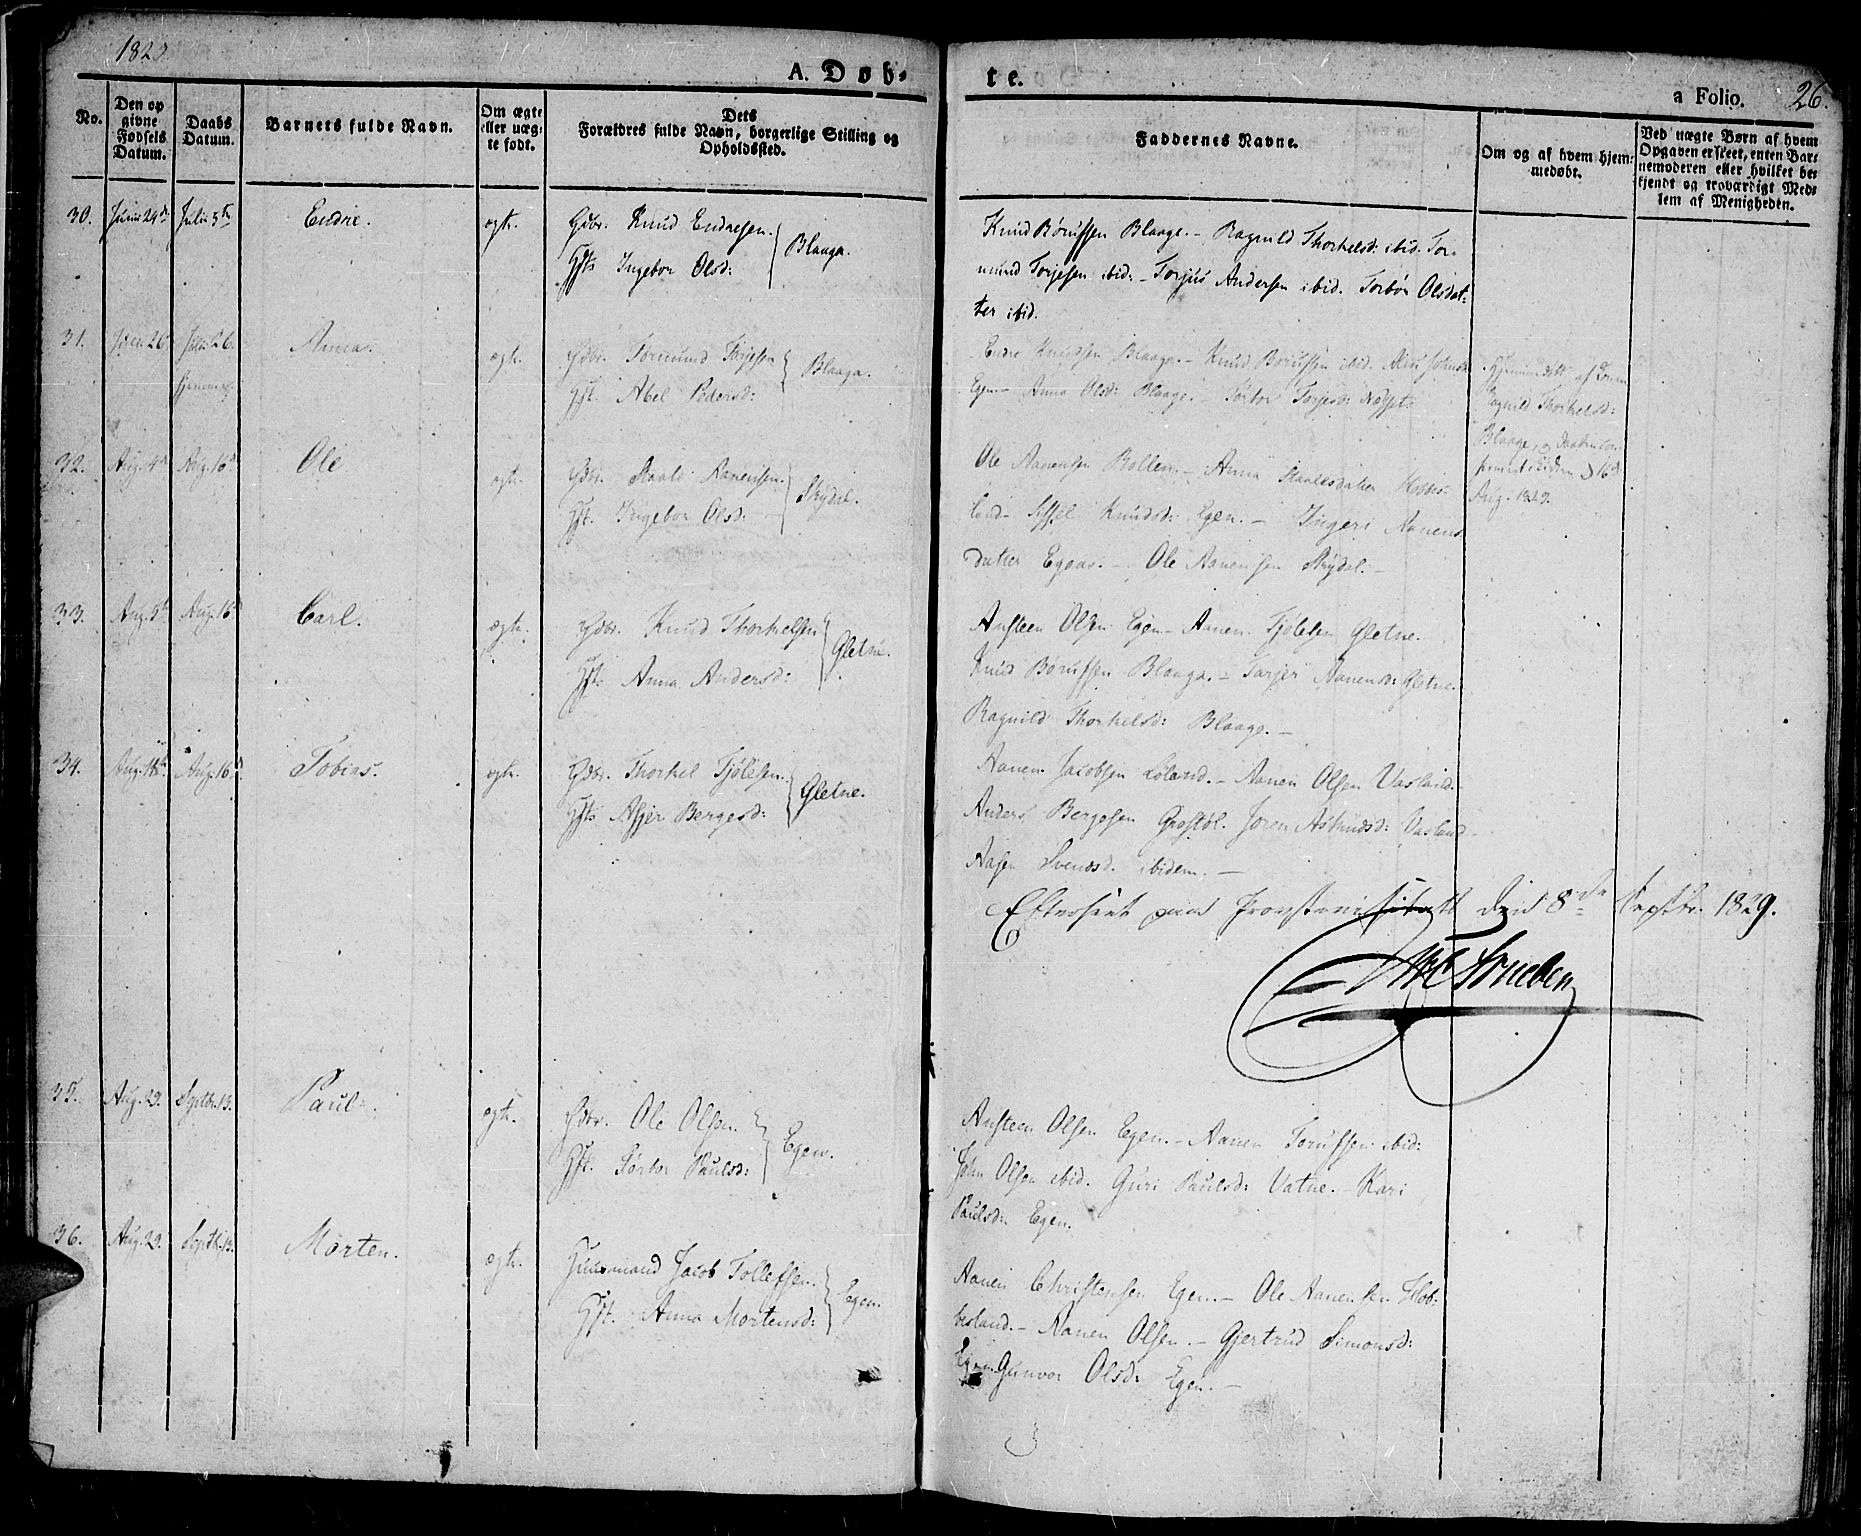 1829
A. Døb-
te.
a Folio. 26.
No.
Den op
givne
Fødsels
Datum.
Daabs
Datum.
Barnets fulde Navn.
Om ægte
eller uæg-
te født.
Dets
Forældres fulde Navn, borgerlige Stilling og
Opholdssted.
Faddernes Navne.
Om og af hvem hjem-
medøbt.
Ved uægte Børn af hvem
Opgaven er skeet, enten Bar-
nemoderen eller hvilket be-
kjendt og troværdigt Med-
lem af Menigheden.
30. Junii 24de Julii 5te Endre. ægte. Gdbr. Knud Endresen.
Hst. Ingebor Olsd: Blaaga.
Knud Børufsen Blaage. - Ragnild Thorkelsd: ibid. Tor-
mund Torjesen ibid: - Torjus Andersen ibid. Torbor Olsdat-
ter ibid.
31. 26 Julii 26 Anna. ægte. Gdbr. Tormund Torjesen
Hst. Abel Pedersd: Blaaga.
Endre Knudsen Blaaga. - Knud Børufsen ibid.
Egen - Anna Olsd: Blaage. - Torbor Torjesd:
Hjemmedøbt af
Ragnild Thorkelsd:
Blaage, og Daaben
16de
Aug. 1829.
32. Aug. 4de Aug. 16de Ole ægte. Gdbr. Staale Aanensen.
Hst. Ingebor Olsd: Skydal.
Ole Aanensen Bollen. - Anna Staalesdatter Hobbes-
land - Knudsd: Egen. - Ingeri Aanens
datter Egaas. - Ole Aanensen Skydal. -
33. Aug. 5te Aug. 16de Carl. ægte. Gdbr. Knud Thorkelsen
Hst. Anna Andersd: Gletne.
Ansteen Olsen Egen - Aanen Tjølesen Gletne.
Knud Børufsen Blaaga. - Tarjer Aanensd: Gletne.
Ragnild Thorkelsd: Blaage. -
34. Aug. 14de Aug. 16de Tobias. ægte. Gdbr. Thorkel Tjølesen.
Hst. Asjer Bergesd: Gletne.
Aanen Jacobsen Løland. - Aanen Olsen Vasland.
Anders Bergesen Grostøl. Joren Aslaksd: Vasland
Aasen Svendsd. ibidem. -
Efterseet paa Provstevisitats d. 8de Septbr. 1829.
35. Aug. 29. Septbr. 13. Paul. ægte. Gdbr. Ole Olsen.
Hst. Torbor Paulsd: Egen.
Ansteen Olsen Egen. - Aanen Torufsen ibid:
John Olsen ibid. Guri Paulsd: Vatne. Kari
Paulsd: Egen.
36. Aug. 29. Septbr. 13. Morten. ægte. Huusmand Jacob Tollefsen.
Hst. Anna Mortensd: Egen.
Aanen Christensen Egen. - Ole Aanensen Hob-
besland. - Aanen Olsen. - Gjertrud Simonsd:
Egen. Gunvor Olsd: Egen. -